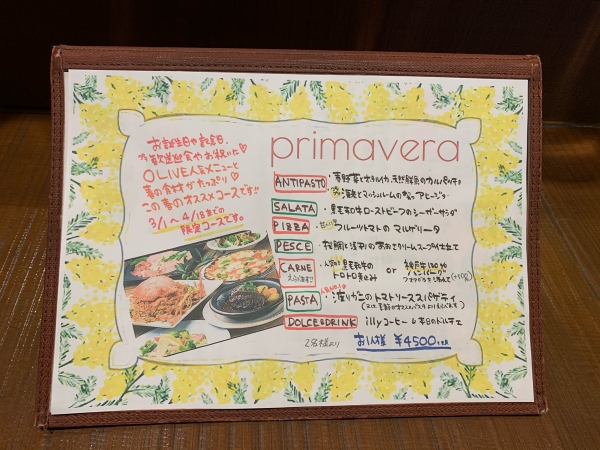 お誕生日や記念日、
歓送迎会やお祝いに♡
OLIVE人気メニューと
春の食材がたっぷり♡
この春のオススメコースです!!
3/1〜4/18までの
限定コースです。
primavera
ANTIPASTO ・春野菜とホタルイカ、天然鮮魚のカルパッチョ
・海老とマッシュルームのアヒージョ
SALATA ・黒毛和牛ローストビーフのシーザーサラダ
PIZZA フルーツトマトのマルゲリータ
PESCE ・桜鯛と浅利のあおさクリームスープ仕立て
CARNE ・人気!! 黒毛和牛のトロトロ煮込み or 神戸牛100%ハンバーグ
PASTA ・渡りガニのトマトソーススパゲティ
DOLCE&DRINK illyコーヒー & 本日のドルチェ
2名様より
お1人様 ¥4500